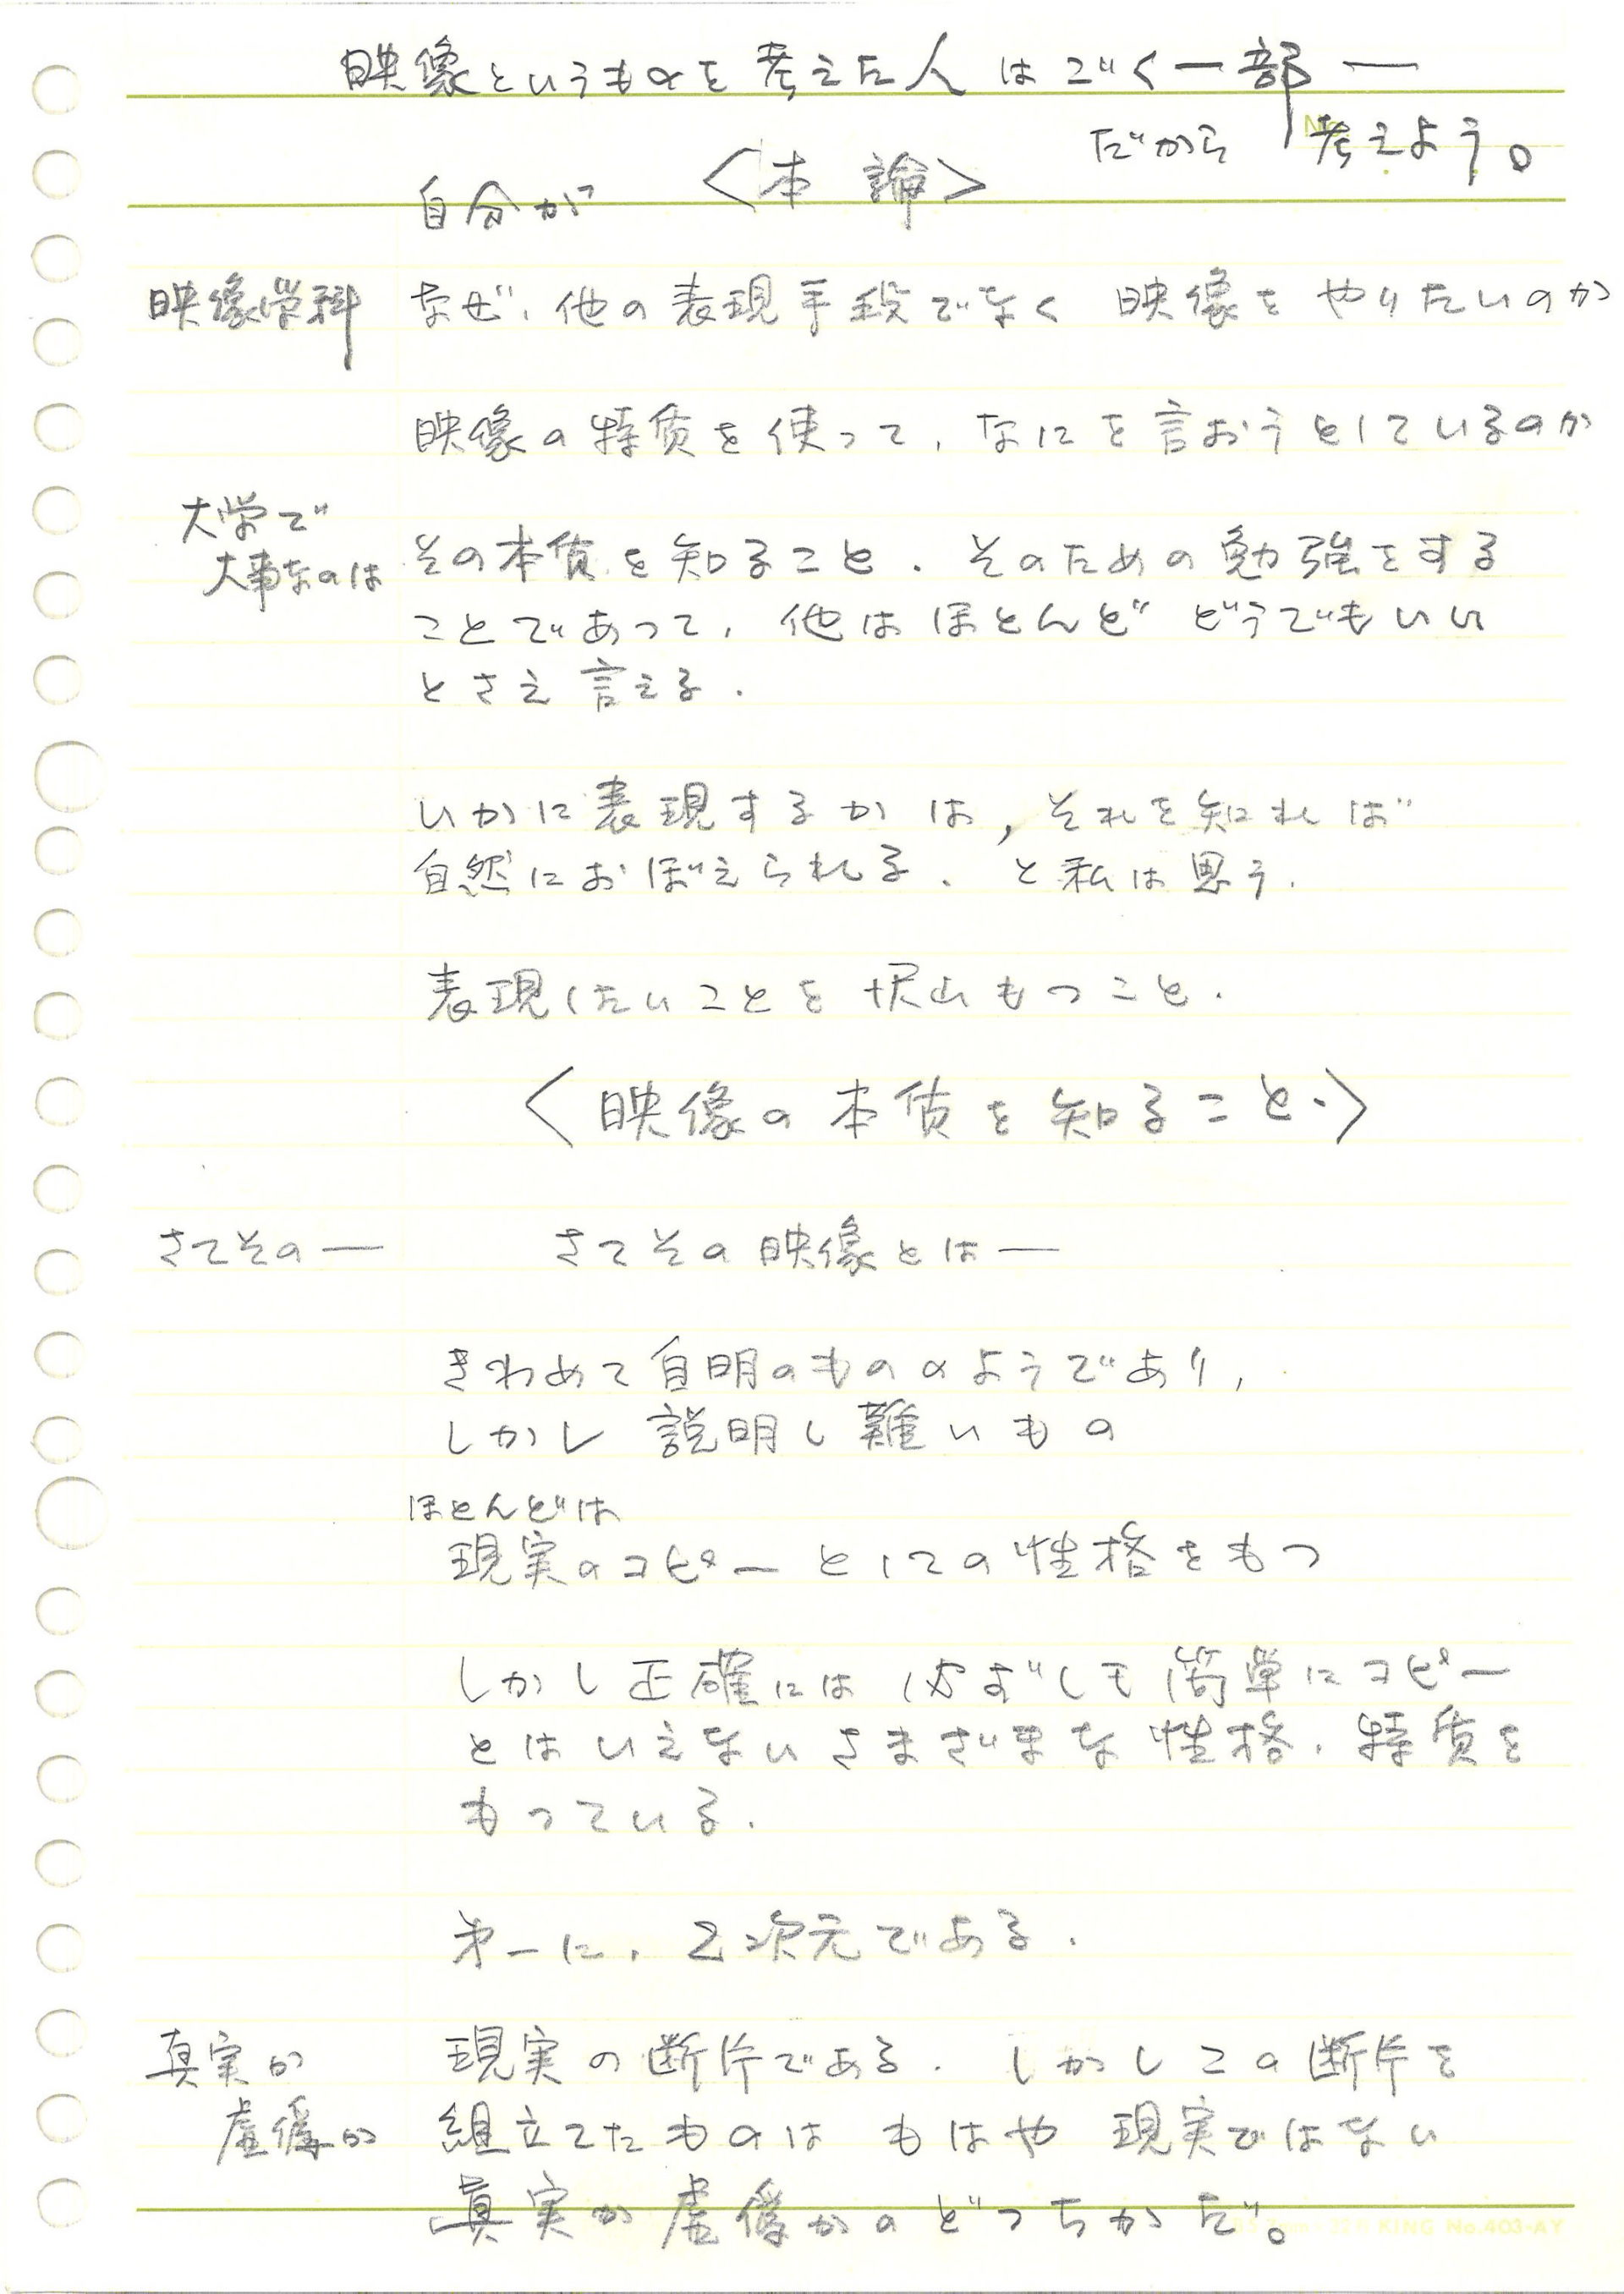 映像というものを考えた人はごく一部 ―
だから 考えよう。
<本論>
自分が
映像学科 なぜ、他の表現手段でなく 映像を やりたいのか
映像の特質を使って、なにを言おうとしているのか
大学で
大事なのは
その本質を知ること.そのための勉強をする
ことであって、他はほとんど どうでもいい
とさえ言える.
いかに表現するかは,それを知れば
自然におぼえられる、と私は思う.
表現したいことを沢山もつこと.
<映像の本質を知ること.>
さてその― さてその映像とは―
きわめて自明のもののようであり,
しかし 説明し難いもの
ほとんどは
現実のコピーとしての性格をもつ
しかし正確には 必ずしも簡単にコピー
とはいえないさまざまな性格、特質を
もっている.
第一に、2次元である.
真実か 現実の断片である.しかしこの断片を
虚像か 組立てたものは もはや 現実ではない
真実か虚像かのどっちかだ。
B5 7mm KING No.403-AY